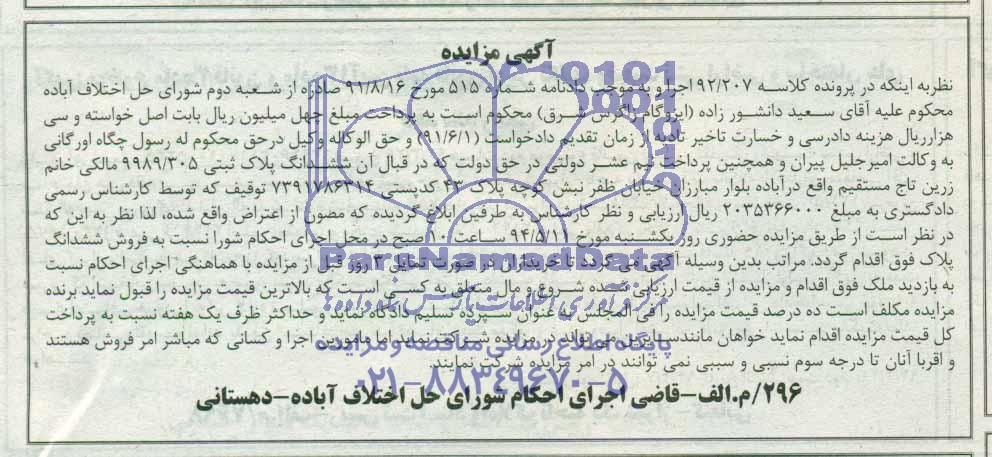 آگهی مزایده
نظربه اینکه در پرونده کلاسه ۹۲/۲۰۷ اجرا و به موجب دادنامه شماره ۵۱۵ مورخ ۹۱/۸/۱۶ صادره از شعبه دوم شورای حل اختلاف آباده
محکوم علیه آقای سعید دانشور زاده (ایزوگام زاگرس شرق) محکوم است به پرداخت مبلغ چهل میلیون ریال بابت اصل خواسته و سی
هزارریال هزینه دادرسی و خسارت تاخیر تادیه از زمان تقدیم دادخواست (۹۱/۶/۱) و حق الوکاله وکیل درحق محکوم له رسول چگاه اورگانی
به وکالت امیرجلیل پیران و همچنین پرداخت نیم عشر دولتی در حق دولت که در قبال آن ششدانگ پلاک ثبتی ۹۹۸۹/۳۰۵ مالکی خانم
زرین تاج مستقیم واقع درآباده بلوار مبارزان خیابان ظفر نبش کوچه پلاک ۴۳ کدپستی ۷۳۹۱۷۸۶۳۱۴ توقیف که توسط کارشناس رسمی
دادگستری به مبلغ ۲۰۳۵۳۶۶۰۰۰ ریال ارزیابی و نظر کارشناس به طرفین ابلاغ گردیده که مصون از اعتراض واقع شده، لذا نظر به این که
در نظر است از طریق مزایده حضوری روز یکشنبه مورخ ۹۴/۵/۱۱ ساعت ۱۰ صبح در محل اجرای احکام شورا نسبت به فروش ششدانگ
پلاک فوق اقدام گردد. مراتب بدین وسیله آگهی می گردد تا خریداران در صورت تمایل ۳ روز قبل از مزایده با هماهنگی اجرای احکام نسبت
به بازدید ملک فوق اقدام و مزایده از قیمت ارزیابی شده شروع و مال متعلق به کسی است که بالاترین قیمت مزایده را قبول نماید برنده
مزایده مکلف است ده درصد قیمت مزایده را فی المجلس به عنوان سپرده تسلیم دادگاه نماید و حداکثر ظرف یک هفته نسبت به پرداخت
کل قیمت مزایده اقدام نماید خواهان مانندسایرین می تواند در مزایده شرکت نماید اما مامورین اجرا و کسانی که مباشر امر فروش هستند
و اقربا آنان تا درجه سوم نسبی و سببی نمی توانند در امر مزایده شرکت نمایند.
۲۹۶/م.الف-قاضی اجرای احکام شورای حل اختلاف آباده-دهستانی
ParsNamadData
مرکز فرآوری اطلاعات پارس نماد داده ها
پایگاه اطلاع رسانی مناقصه و مزایده
۰۲۱-۸۸۳۴۹۶۷۰-۵